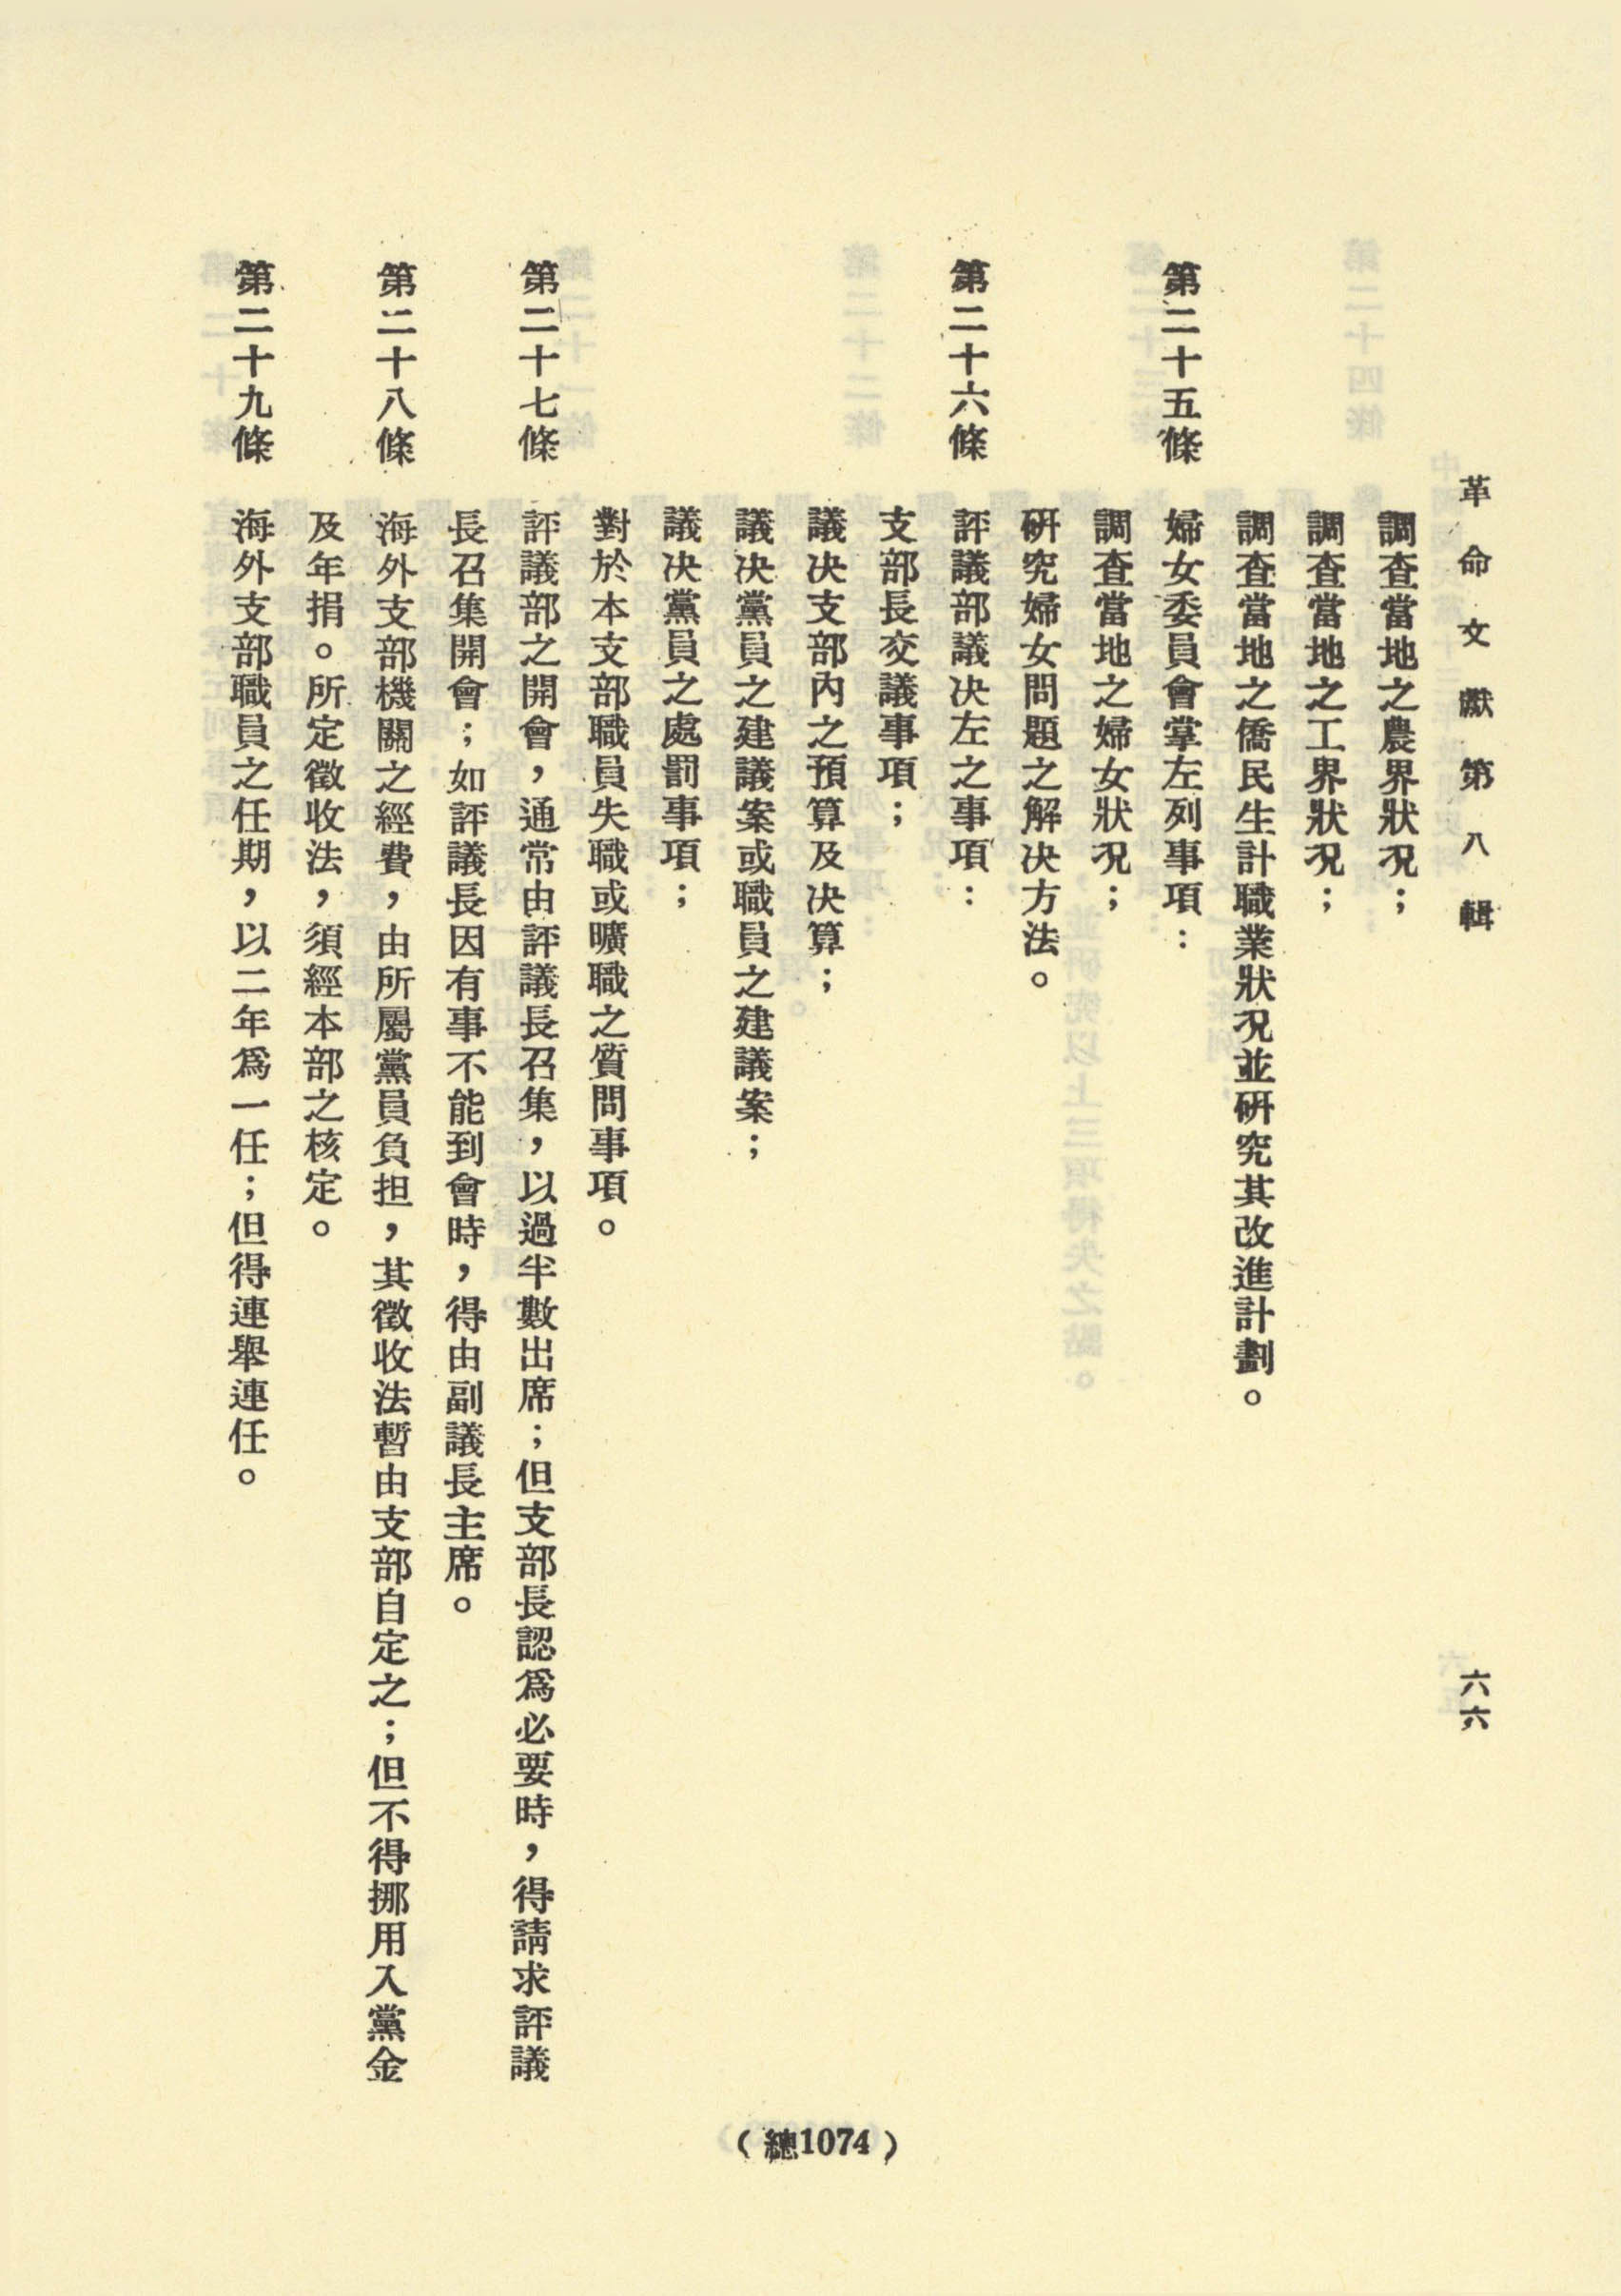 革命文獻第八輯
六六
調查當地之農界狀況；
調查當地之工界狀況；
調查當地之僑民生計職業狀況並研究其改進計劃。
第二十五條　婦女委員會掌左列事項：
調查當地之婦女狀況；
研究婦女問題之解決方法。
第二十六條　評議部議決左之事項：
支部長交議事項；
議決支部內之預算及決算；
議決黨員之建議案或職員之建議案；
議決黨員之處罰事項；
對於本支部職員失職或曠職之質問事項。
第二十七條　評議部之開會，通常由評議長召集，以過半數出席；但支部長認爲必要時，得請求評議
長召集開會；如評議長因有事不能到會時，得由副議長主席。
第二十八條　海外支部機關之經費，由所屬黨員負担，其徵收法暫由支部自定之；但不得挪用入黨金
及年捐。所定徵收法，須經本部之核定。
第二十九條　海外支部職員之任期，以二年爲一任；但得連舉連任。
（總1074）